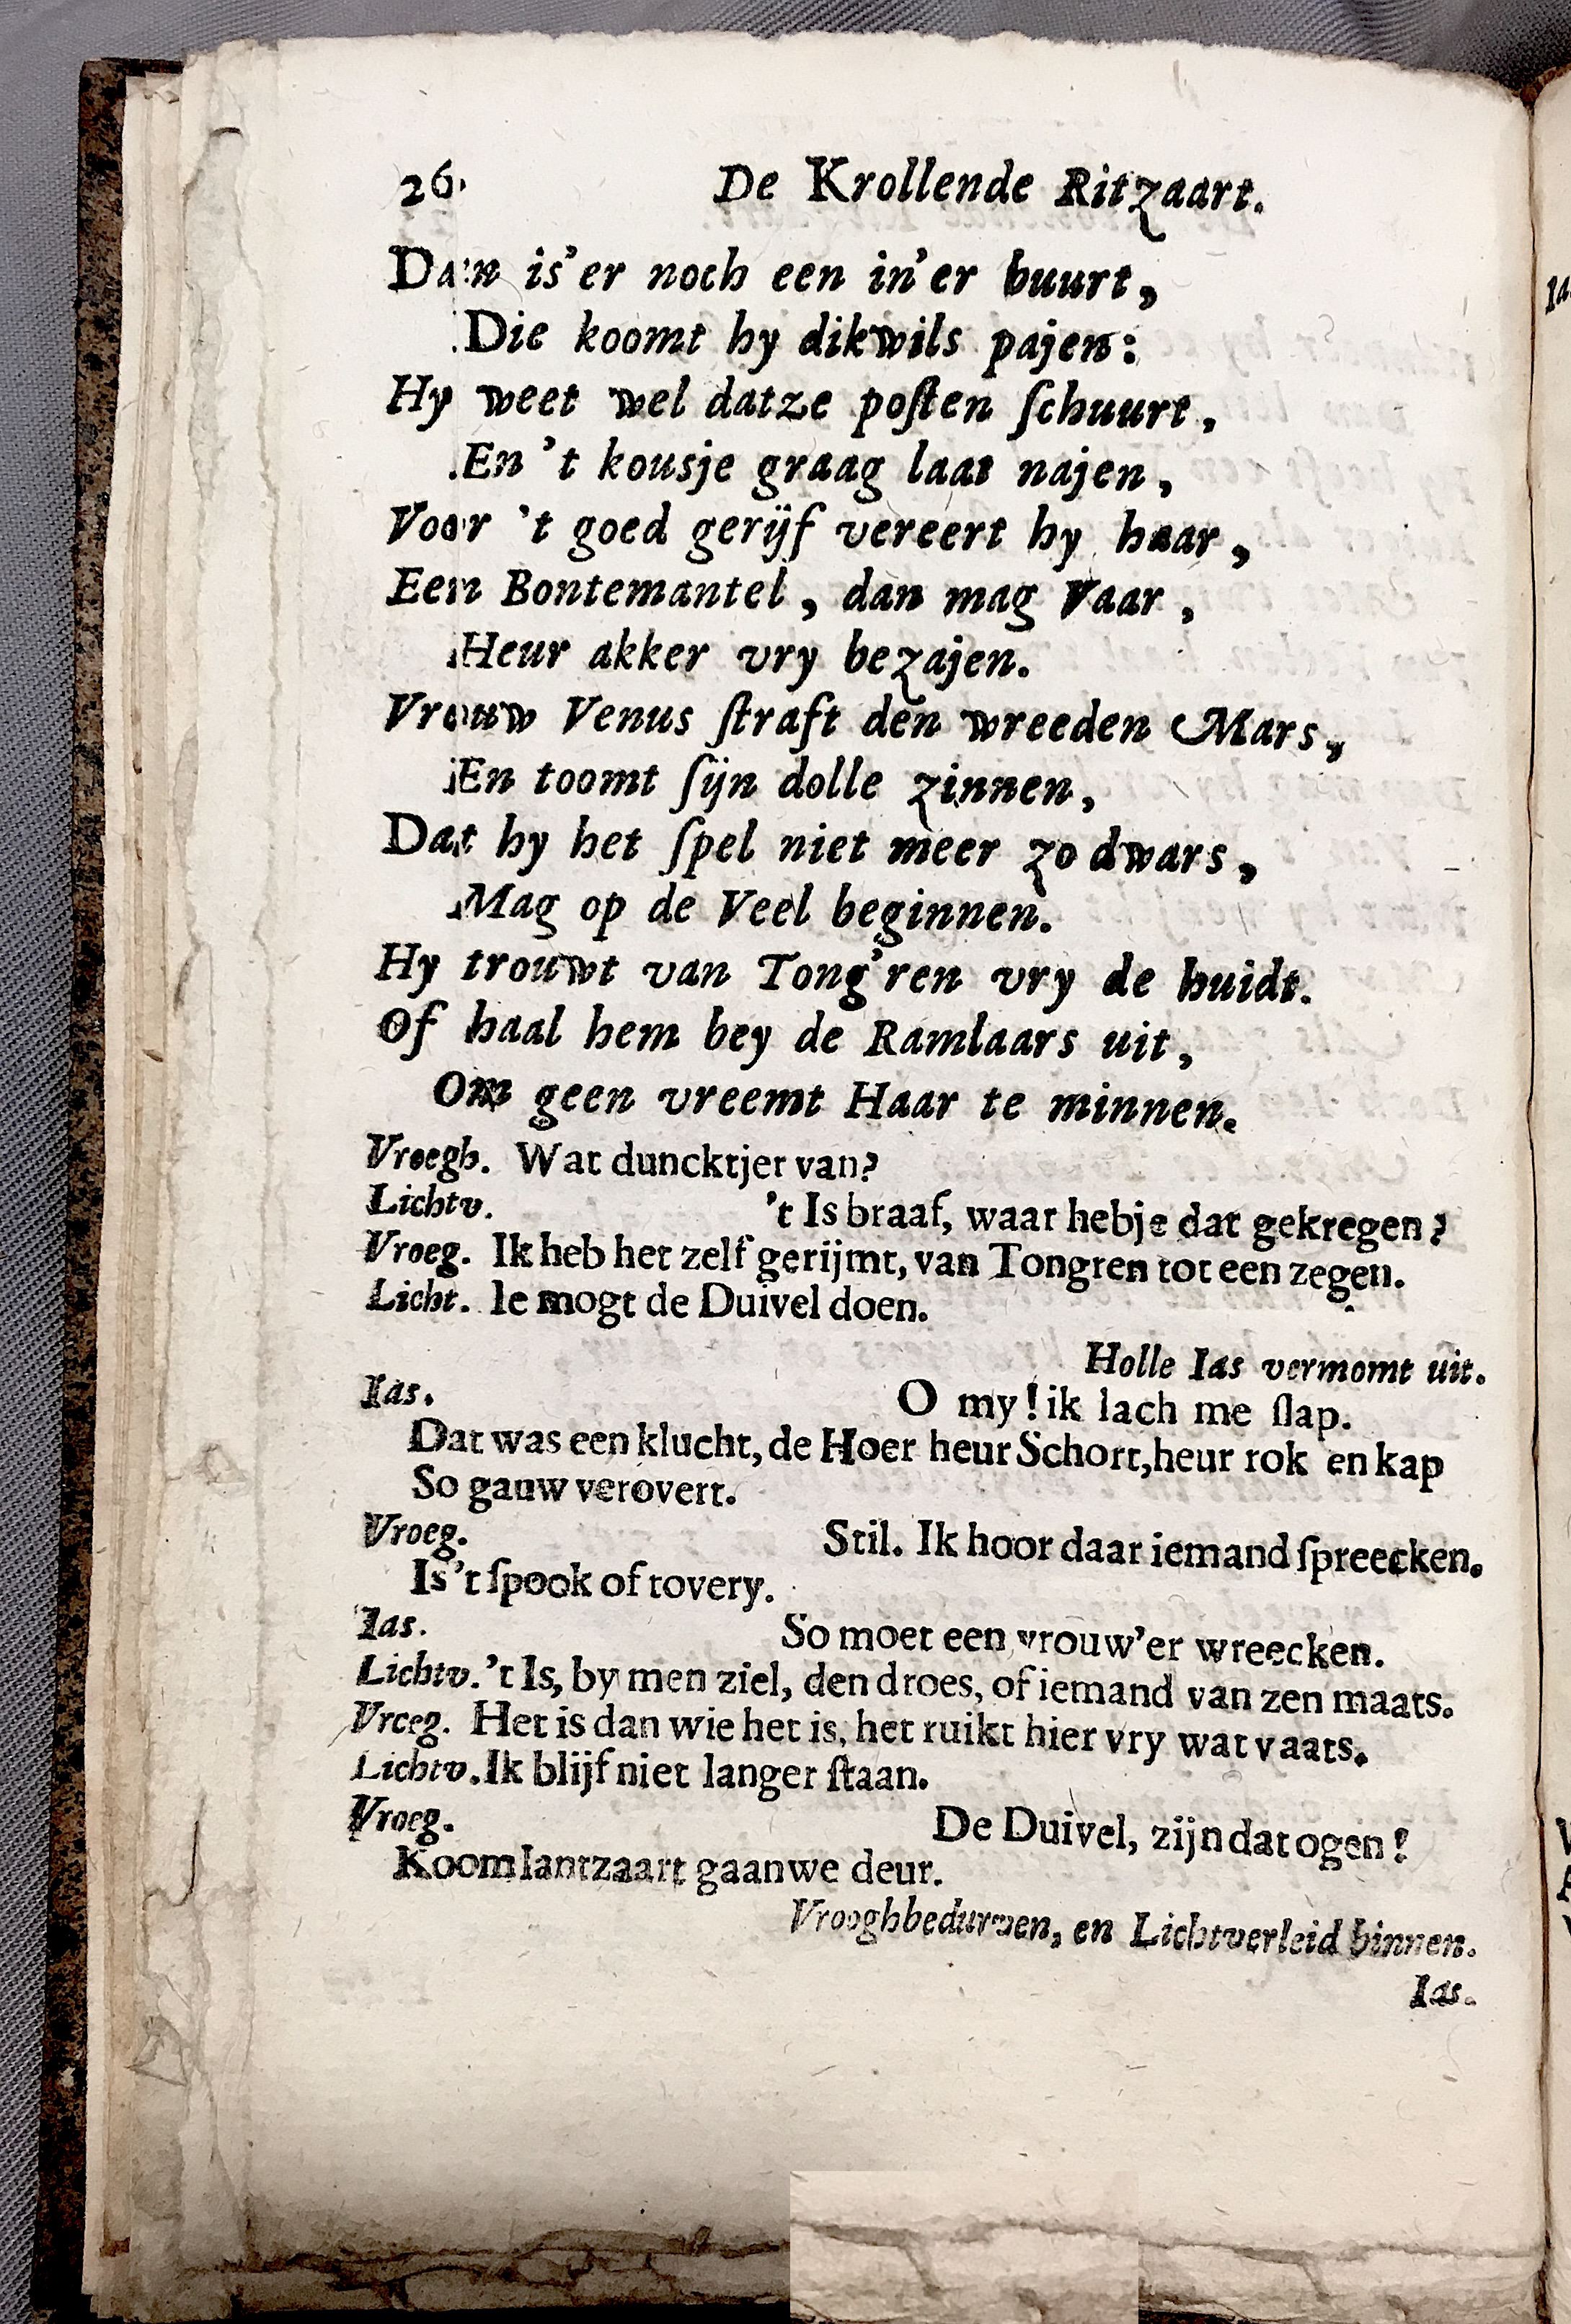 26 De Krollende Ritzaart.
Dan is'er noch een in'er buurt,
Die koomt hy dikwils pajen:
Hy weet wel datze poſten ſchuurt,
En 't kousje graag laat najen,
Voor 't goed gerijf vereert hy haar,
Een Bontemantel, dan mag Vaar,
Heur akker vry bezajen.
Vrouw Venus ſtraft den wreeden Mars,
En toomt ſijn dolle zinnen,
Dat hy het ſpel niet meer zo dwars,
Mag op de Veel beginnen.
Hy trouwt van Tong'ren vry de huidt.
Of haal hem bey de Ramlaars uit,
Om geen vreemt Haar te minnen.
Vroegh. Wat duncktjer van?
Lichtv. 't Is braaf, waar hebje dat gekregen?
Vroeg. Ik heb het zelf gerijmt, van Tongren tot een zegen.
Licht. Ie mogt de Duivel doen.
Holle Ias vermomt uit.
Ias. O my! ik lach me ſlap.
Dat was een klucht, de Hoer heur Schort, heur rok en kap
So gauw verovert.
Vroeg. Stil. Ik hoor daar iemand ſpreecken.
Is't ſpook of tovery.
Ias. So moet een vrouw'er wreecken.
Lichtv. 't Is, by men ziel, den droes, of iemand van zen maats.
Vroeg. Het is dan wie het is, het ruikt hier vry wat vaats.
Lichtv. Ik blijf niet langer ſtaan.
Vroeg. De Duivel, zijn dat ogen!
Koom lantzaart gaan we deur.
Vrooghbedurven, en Lichtverleid binnen.
Ias.